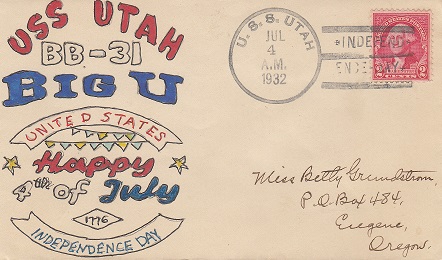 USS UTAH
BB-31
BIG U
UNITED STATES
Happy
4th of July
1776
INDEPENDENCE DAY
U.S.S. UTAH
JUL
4
A.M.
1932
INDEPEND
ENCE DAY
2 CENTS 2
Miss Betty Grundstrom
P.O. Box 484,
Eugene,
Oregon.